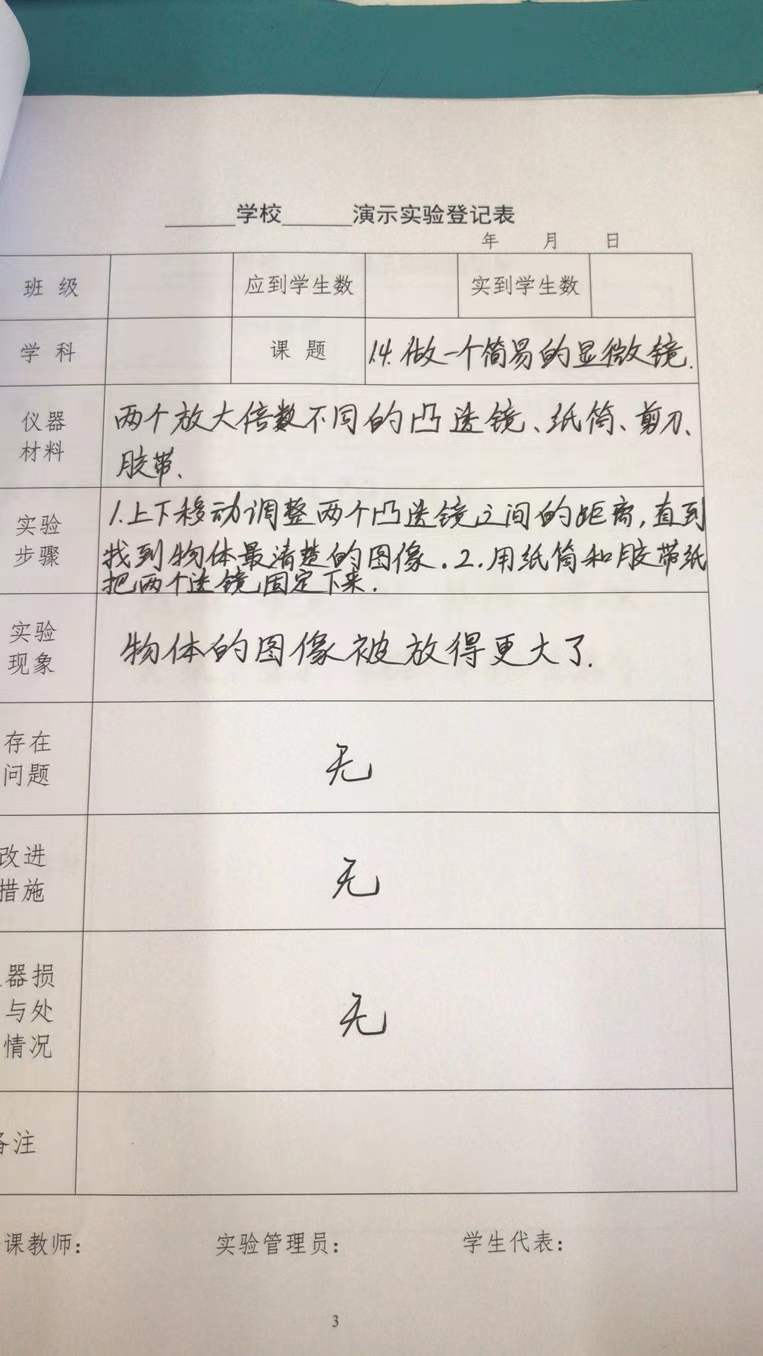 ______学校______演示实验登记表
年 月 日
班 级 应到学生数 实到学生数
学 科 课 题 14.做一个简易的显微镜.
仪器
材料
两个放大倍数不同的凸透镜、纸筒、剪刀、
胶带、
实验
步骤
1.上下移动调整两个凸透镜之间的距离,直到
找到物体最清楚的图像.2.用纸筒和胶带纸
把两个透镜固定下来.
实验
现象
物体的图像被放得更大了.
存在
问题
无
改进
措施
无
器损
与处
情况
无
备注
课教师: 实验管理员: 学生代表:
3